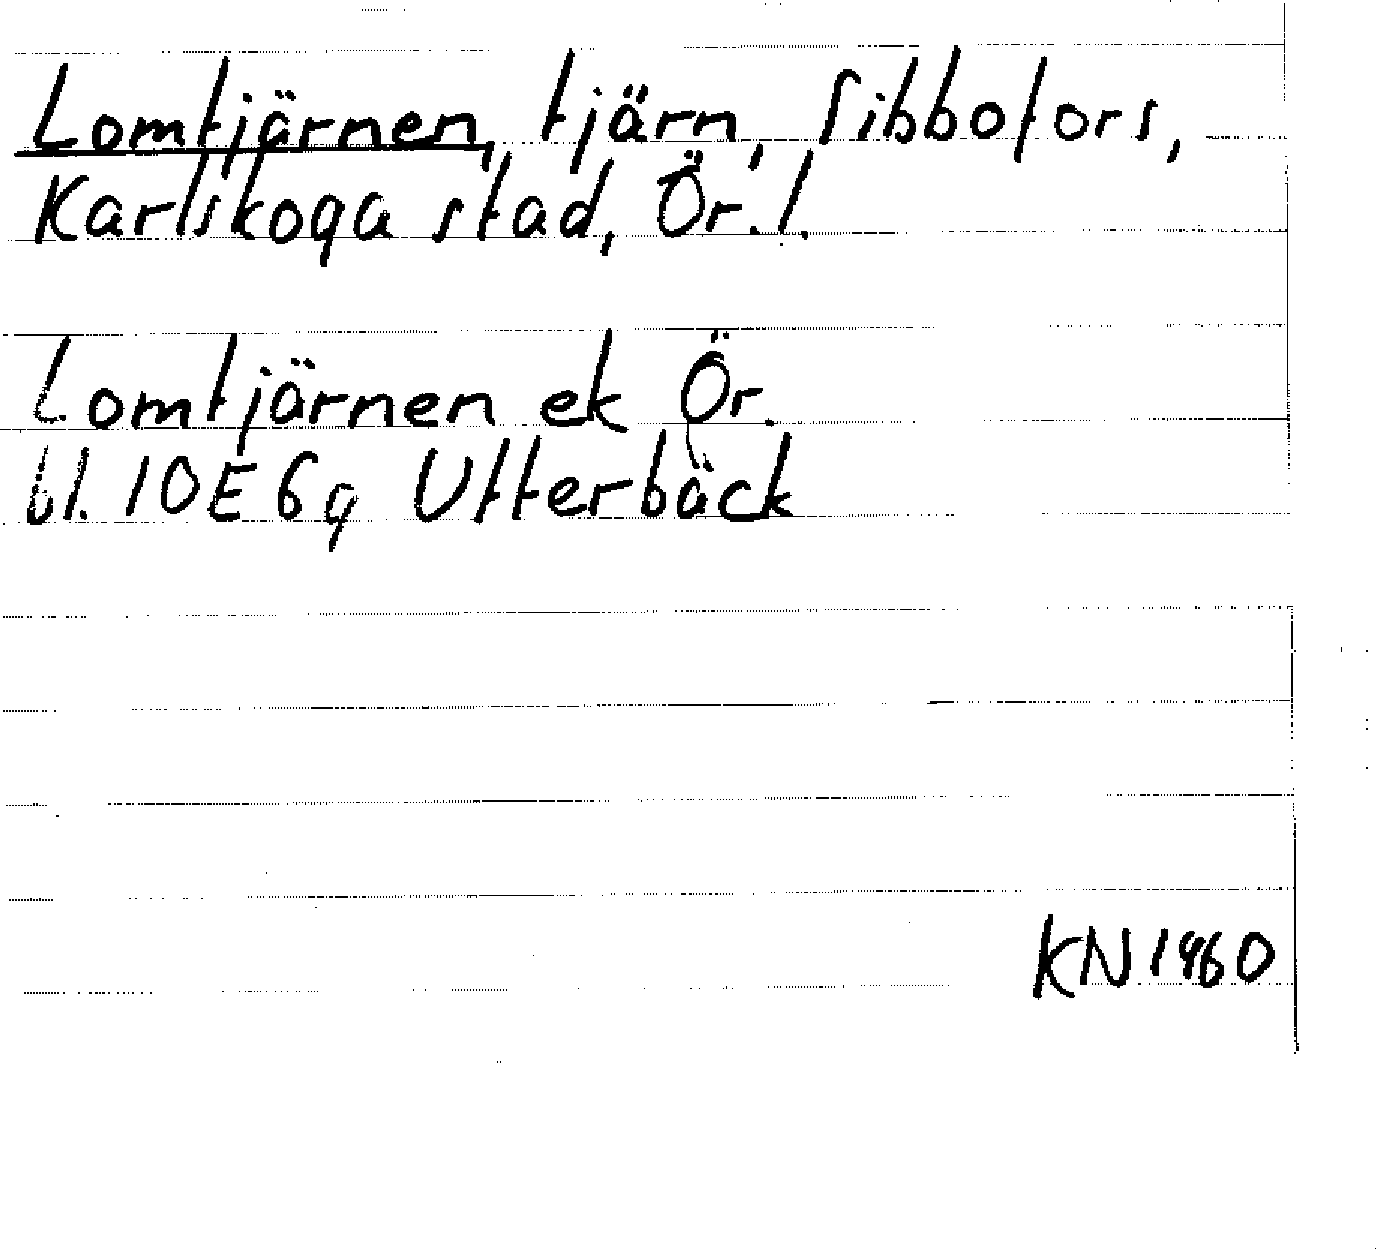 Lomtjärnen, tjärn, Sibbofors,
Karlskoga stad, Ör. l.
Lomtjärnen ek Ör.
bl. 10E 6g Utterbäck
KN 1960